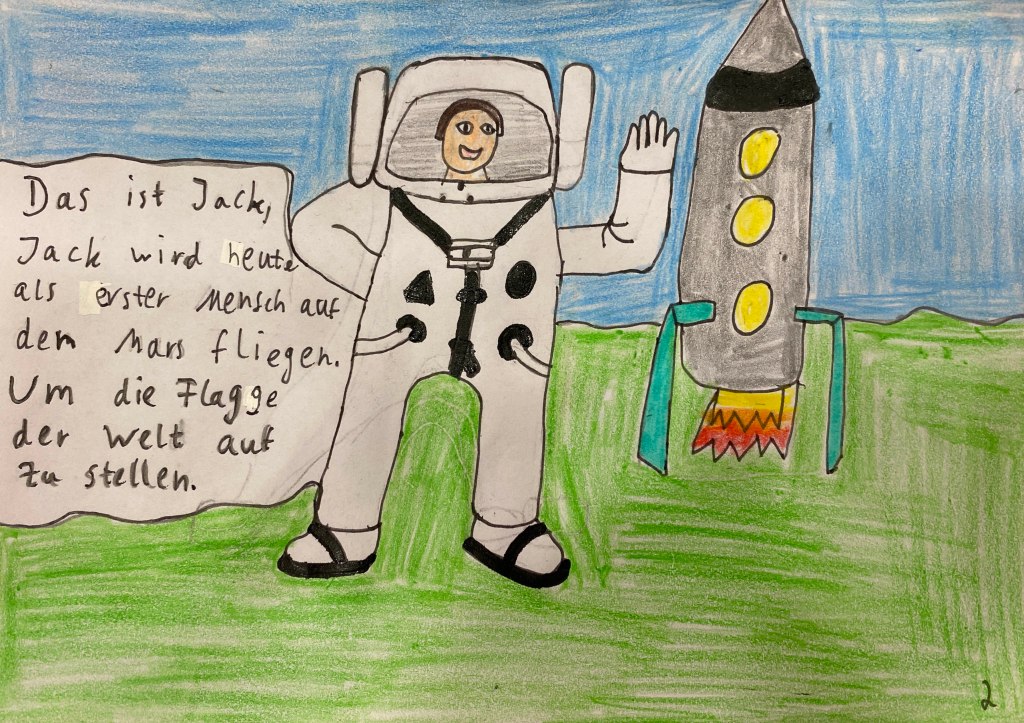 Das ist Jack,
Jack wird heute
als erster Mensch auf
dem Mars fliegen.
Um die Flagge
der Welt auf
zu stellen.
2